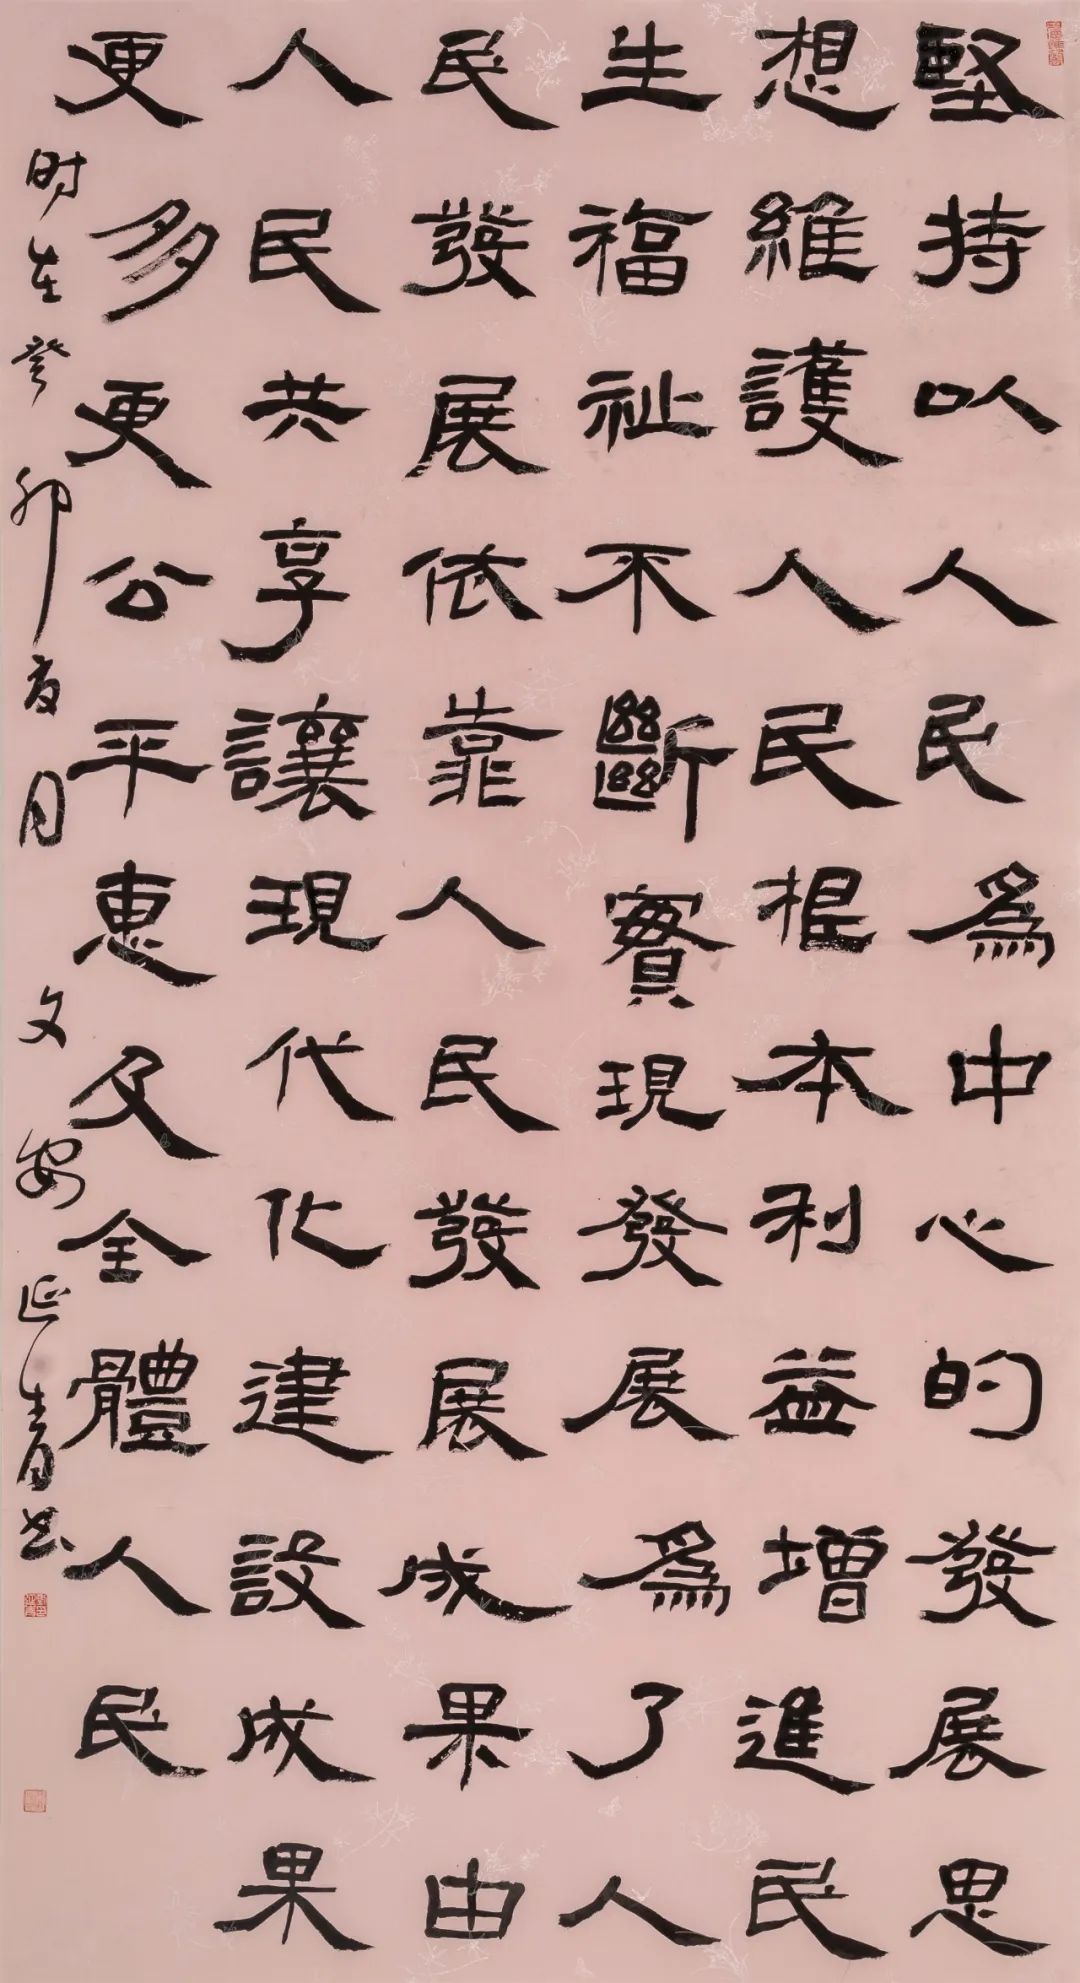 堅持以人民為中心的發展思
想維護人民根本利益增進民
生福祉不斷實現發展為了人
民發展依靠人民發展成果由
人民共享讓現代化建設成果
更多更公平惠及全體人民
時在癸卯夏月文安延青書